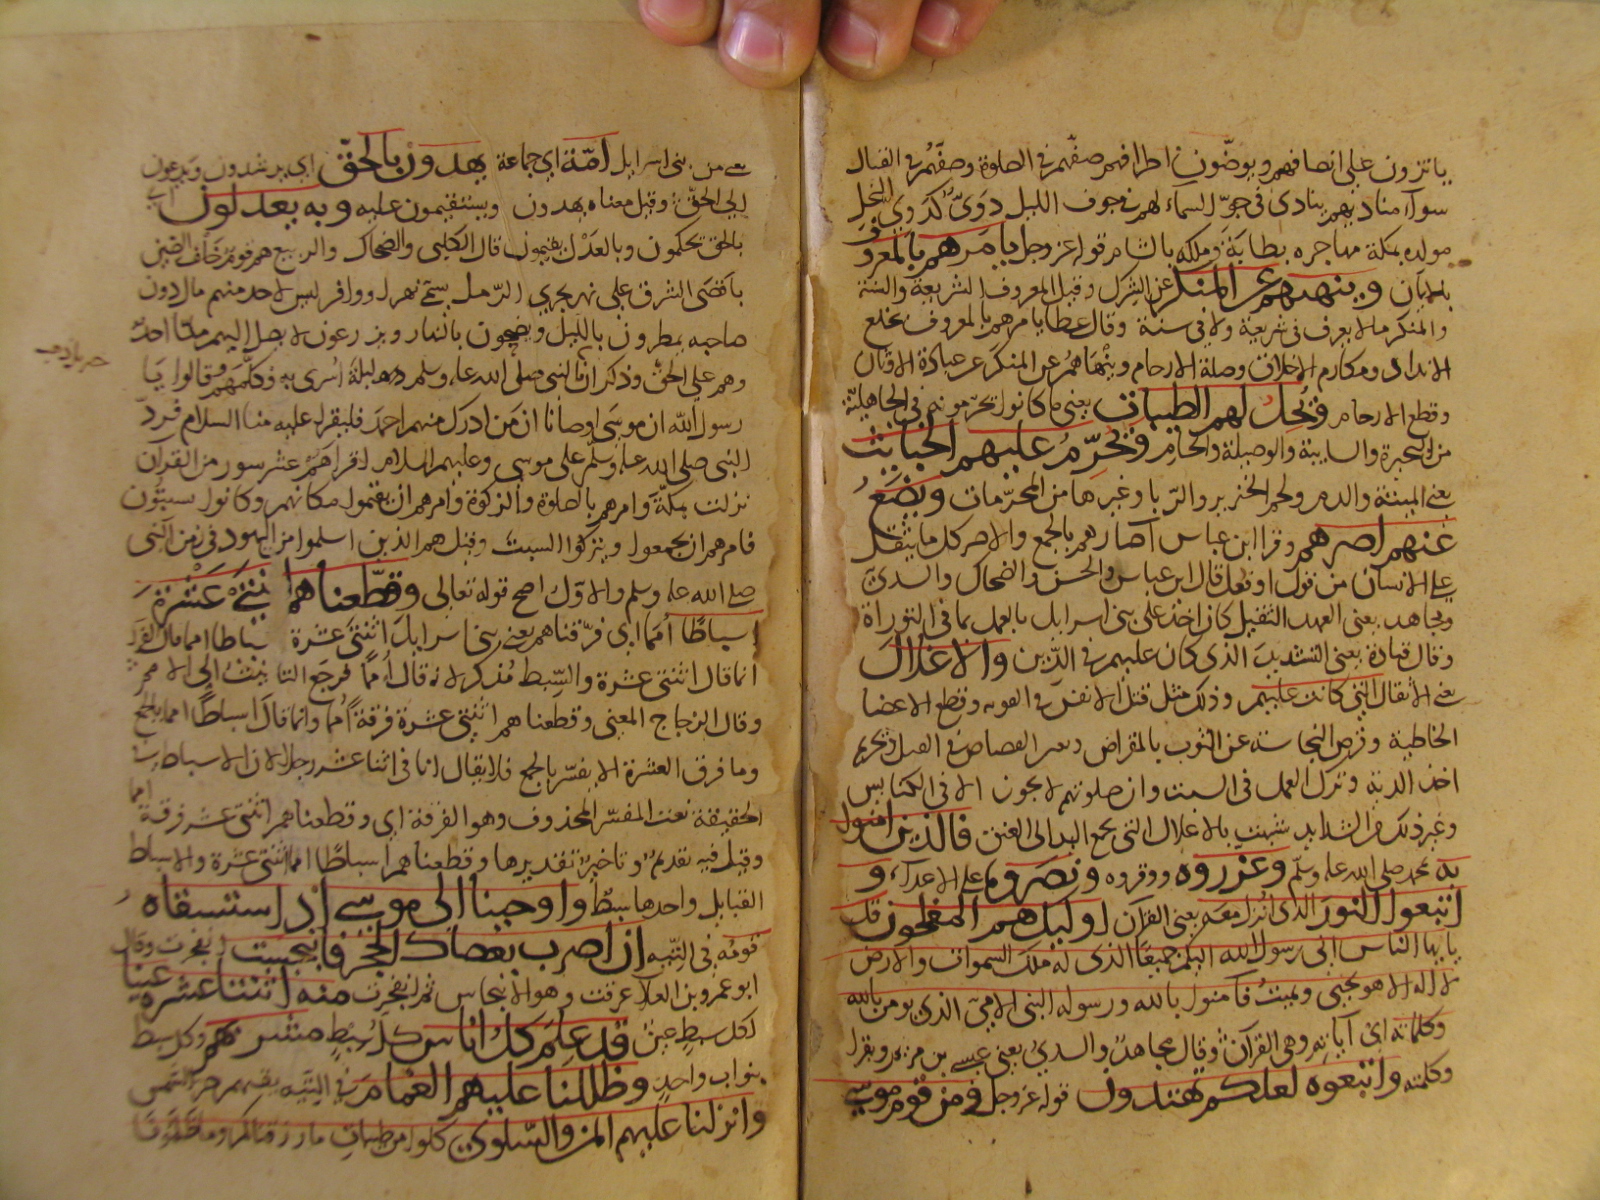 ياتزرون على انصافهم ويوضّون اطرافهم صفّهم في الصلوة وصفّهُم في القتال
سوآء مناديهم ينادي في جوّ السمآء لهم في جوف الليل دَويّ كدَوي النحل
مولده بمكة مهاجره بطابَة وملكه بالشام قوله عز وجل يامرهم بالمعروف
بالايمان وينهيهم عن المنكر عن الشرك وقيل المعروف الشريعة والسنة
والمنكر ما لا يعرف في شريعة ولا في سنة وقال عطا يامرهم بالمعروف بخلع
الانداد ومكارم الاخلاق وصلة الارحام وينْهاهُم عن المنكر عن عبادة الاوثان
وقطع الارحام وَيُحلُّ لهم الطيبات يعني ما كانوا يحرّمونه في الجاهلية
من البحيرة والسايبة والوصيلة والحام ويُحَرِّمُ عليهم الخبايث
يعني الميتة والدم ولحم الخنزير والرّبا وغيرها من المحرّمات ويَضَعُ
عَنهم اصرهم وقرا ابن عباس آصارهم بالجمع والاصر كل ما يثقل
على الانسان من قول او فعل قال ابن عباس والحسن والضحاك والسديّ
ومجاهد يعني العهد الثقيل كان اخذ على بني اسرايل بالعمل بما في التوراة
وقال قتادة يعني التشديد الذي كان عليهم في الدّين والاغلال
يعني الاثقال التي كانت عليهم وذلك مثل قتل الانفس في التوبه وقطع الاعضا
الخاطية وقرض النجاسة عن الثوب بالمقراض وتعين القصاص في القتل وتحريم
اخذ الدية وترك العمل في السبت وان صلوتهم لا تجوز الا في الكنايس
وغير ذلك من الشدايد شبهت بالاغلال التي تجمع اليد الى العنق فالذين امنوا
به محمد صلى الله عليه وسلّم وعزروه ووقروه ونصروه على الاعدآء و
اتبعوا النور الذي انزل معَه يعني القرآن اوليك هم المفلحون قل
يا يها الناس اني رسول الله اليكم جميعًا الذي له ملك السموات والارض
لا اله الا هو يحيى ويميتُ فآمنوا بالله ورسوله النبي الاميّ الذي يومن بالله
وكلماته اي آياتِه وهي القرآن وقال مجاهدٌ والسديُّ يعني عيسى بن مريم ويقرا
وكلمته واتبعوه لعلكم تهتدون قوله عز وجل ومن قوم موسى
من بني اسرايل امّة اي جماعة يهدون بالحقّ اي يرشدون ويدعون
الى الحقّ وقيل معناه يهدون ويستقيمون عليه وبه يعدلون اي
بالحق يحكمون وبالعَدْل يقيمون قال الكلبي والضحاك والربيع هم قوم خَلْف الصّين
باقصَى الشرق على نهر يجري الرّمل يسمى نهر لوافر ليس لاحد منهم مال دون
صاحبه يمطرون بالليل ويضحون بالنهار ويزرعون لا يصل اليهم منّا احدٌ
وهم على الحقّ وذكر انّ النبي صلى الله عليه وسلم ليلة اُسرى به فكلّمَهم وقالوا يا
رسول الله ان موسَى اوصانا ان مَن ادرك منهم احمدَ فليقرا عليه منا السلام فردّ
النبي صلى الله عليه وسلّم على موسى وعليهم السلام اقراهُمْ عشر سور من القران
نزلت بمكّة وامرهم بالصلوة والزكوة وامرهم ان يقيموا مكانهم وكانوا يسبتُون
فامرهم ان يجمعوا ويتركوا السبت وقيل هم الذين اسلموا من اليهود في زمن النبي
صلى الله عليه وسلم والاوّل اصح قوله تعالى وقطّعناهم اثنتَيْ عَشْرَةَ
اسباطًا اُممًا اي فرّقناهم يعني بني اسرايل اثنتي عشرة اسباطا امما قال الفرّا
انما قال اثنتي عشرة والسِّبط مُذكر لانه قال اُممًا فرجَع التانيثُ الى الامم
وقال الزجاج المعنى وقطعناهم اثنتي عشرة فرقةً اُمما وانما قال اسباطًا امما بالجمع
وما فرق العشرة لا يفسّر بالجمع فلا يقال اتاني اثنا عشر رجالا لان الاسباط في
الحقيقة نعت المفسّر المحذوف وهو الفرقة اي وقطعناهم اثنتي عشر فرقة امما
وقيل فيه تقديمٌ وتاخيرٌ تقديرها وقطعناهم اسباطًا امما اثنتي عشرة والاسباط
القبايل واحدها سِبطٌ واوحينا الى موسى اذ استسقاه
قومُه في التِّيه ان اضرب بعصاك الحجر فانبجست انفجرت وقال
ابو عمرو بن العلآ عرقت وهو الانبجاس ثم انفجرت منه اثنتا عشره عينا
لكل سبط عين قد علم كل اناس كل سبطٍ مشربهم وكل سبط
بنو اب واحدٍ وظللنا عليهم الغمام في التِّيه يقيهم حرّ الشمس
وانزلنا عليهم المنّ والسّلوى كلوا من طيبات ما رزقناكم وما ظلمُونا